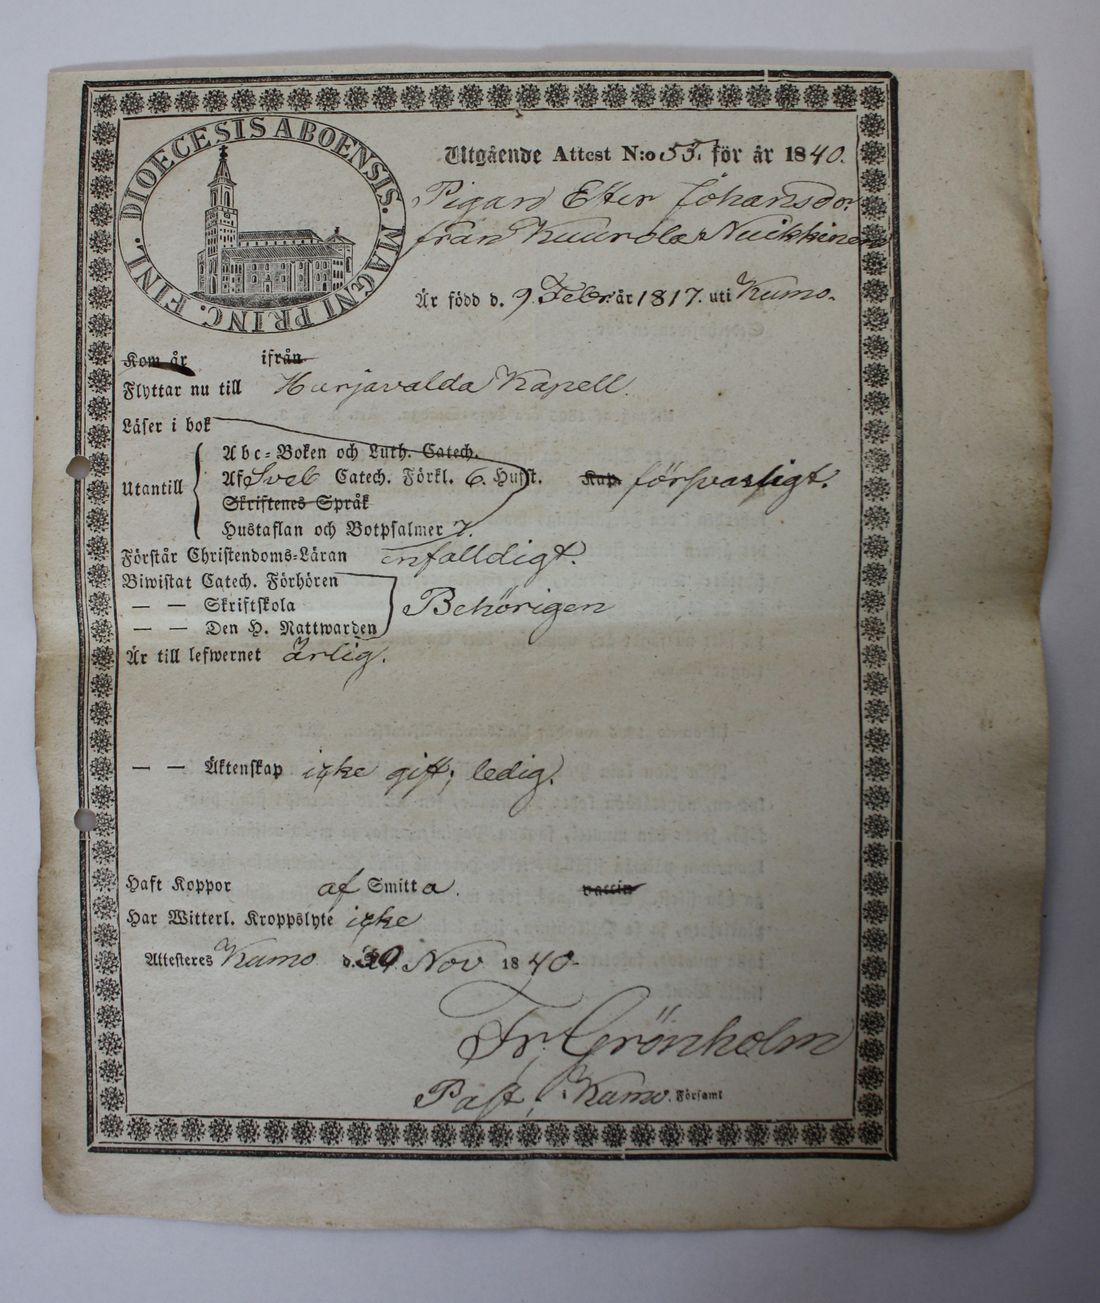 DIOECESIS ABOENSIS. MAGNI PRINC. FINL.
Utgående Attest N:o 55. för år 1840.
Pigan Ester Johansdor.
från Kuurola Nuikkinen
Är född d. 9. Febr år 1817. uti Kumo.
Kom år ifrån
Flyttar nu till Harjavalda Kapell.
Läser i bok
Abc-Boken och Luth. Catech.
Utantill
Af Sveb Catech. Förkl. 6. Hufst. Kap. försvarligt.
Skriftenes Språk
Hustaflan och Botpsalmer 7.
Förstår Christendoms-Läran enfalldigt.
Biwistat Catech. Förhören
— — Skriftskola Behörigen
— — Den H. Nattwarden
Är till lefwernet ärlig.
— — Äktenskap icke gift, ledig.
Haft Koppor af Smitta. vaccin
Har Witterl. Kroppslyte icke
Attesteres Kumo d. 30 Nov 1840-
Fr. Grönholm
Past. i Kumo. Församl